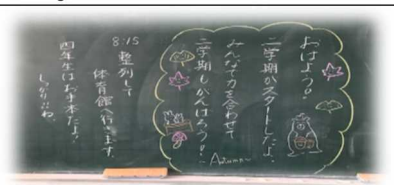 おはよう！
二学期がスタートしたよ。
みんなで力を合わせて
二学期もがんばろう！
Autumn
8:15
整列して
体育館へ行きます。
四年生はお手本だよ！